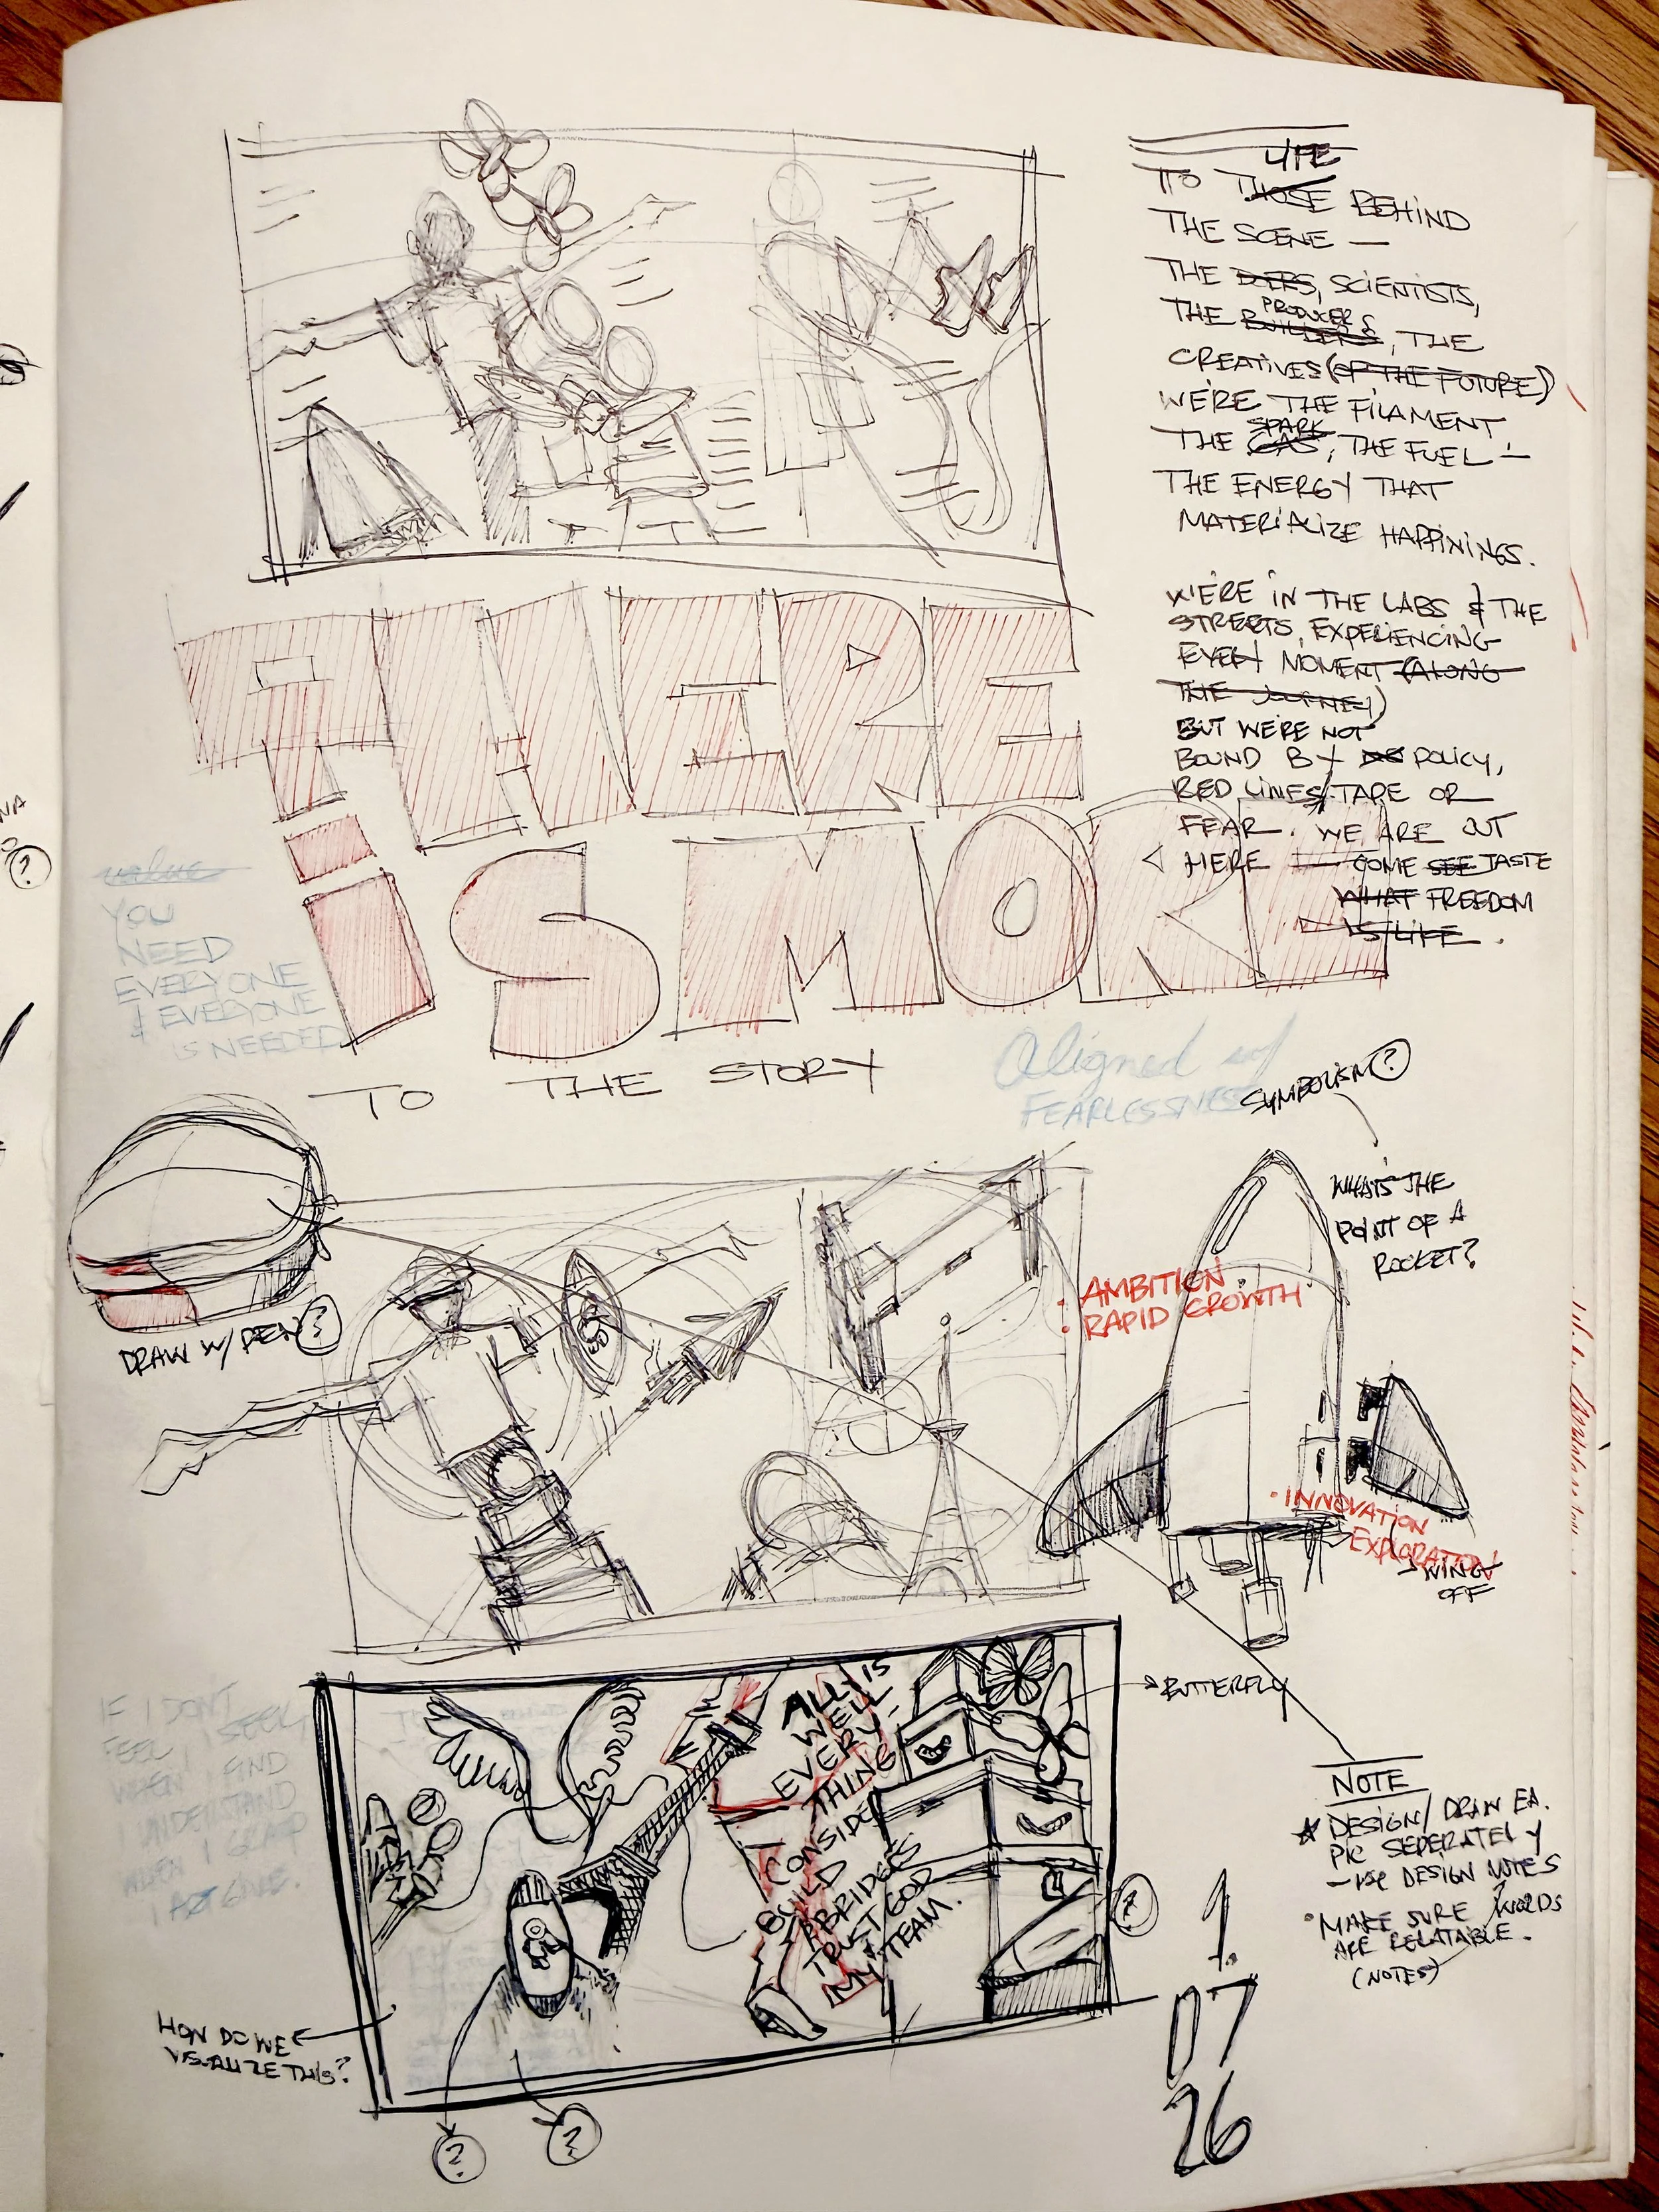 LIFE
TO THOSE BEHIND
THE SCENE —
THE DOERS, SCIENTISTS,
PRODUCERS
THE BUILDERS, THE
CREATIVES (OF THE FUTURE)
WE'RE THE FILAMENT
SPARK
THE GAS, THE FUEL —
THE ENERGY THAT
MATERIALIZE HAPPININGS.
WE'RE IN THE LABS & THE
STREETS, EXPERIENCING
EVERY MOMENT (ALONG
THE JOURNEY)
BUT WE'RE NOT
BOUND BY POLICY,
RED LINES/TAPE OR
FEAR. WE ARE OUT
HERE — COME SEE TASTE
WHAT FREEDOM
IS/LIFE.
THERE
iS MORE
TO THE STORY
value
YOU
NEED
EVERYONE
& EVERYONE
IS NEEDED
Aligned w/
FEARLESSNESS
SYMBOLISM ?
WHAT'S THE
POINT OF A
ROCKET?
• AMBITION
• RAPID GROWTH
• INNOVATION
EXPLORATION
WING
OFF
DRAW W/ PEN ?
IF I DON'T
FEEL I SEEK
WHEN I FIND
UNDERSTAND
WHEN I
I GIVE.
ALL IS
WELL
EVERY-
THING
CONSIDER
BUILD
BRIDGES
TRUST GOD
MY TEAM.
BUTTERFLY
?
NOTE
DESIGN/DRAW EA.
PIC SEPERATELY
— USE DESIGN NOTES
• MAKE SURE WORDS
ARE RELATABLE.
(NOTES)
HOW DO WE
VISUALIZE THIS?
?
?
1.
07
26
VA
?